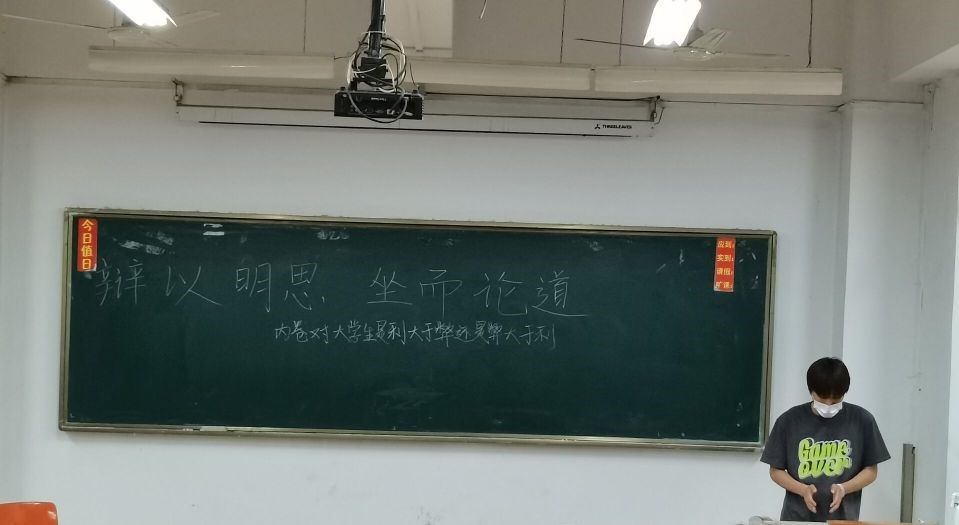 THREELEAVES
今日值日
应到:
实到:
请假:
旷课:
辩以明思 坐而论道
内卷对大学生是利大于弊还是弊大于利
Game
over